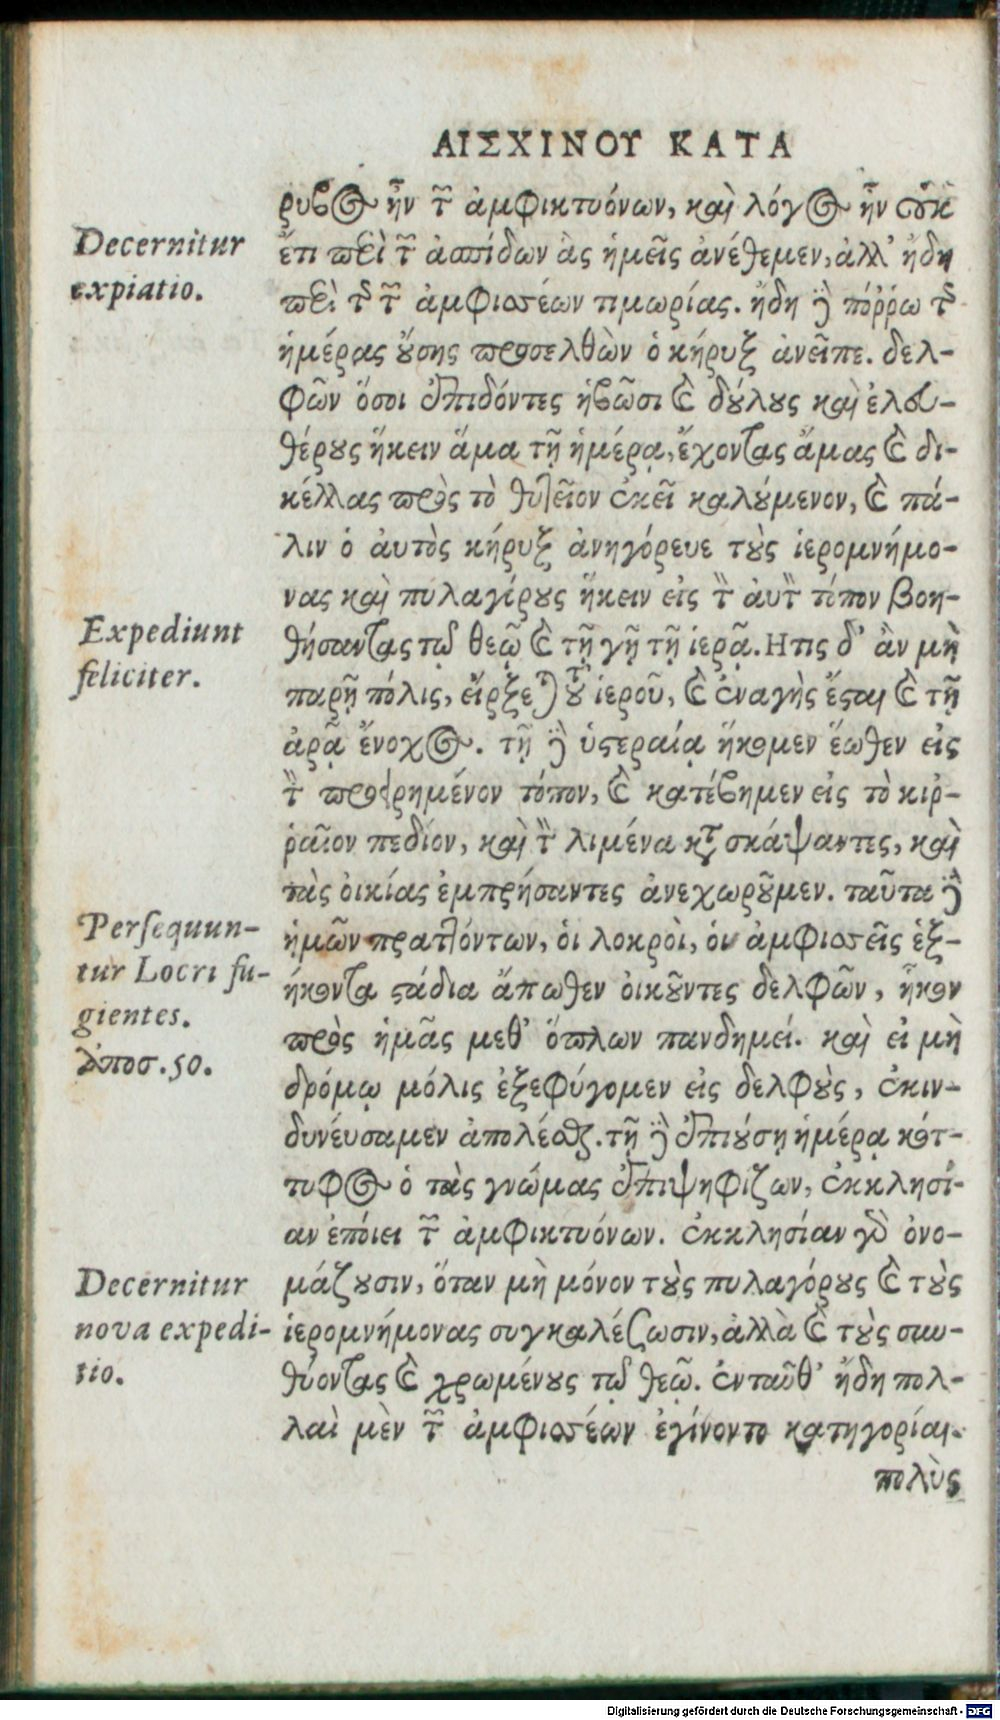 ΑΙΣΧΙΝΟΥ ΚΑΤΑ
ρυβος ἦν τῶν ἀμφικτυόνων, καὶ λόγος ἦν οὐκ
ἔτι περὶ τῶν ἀσπίδων ἃς ἡμεῖς ἀνέθεμεν, ἀλλ’ ἤδη
περὶ τῆς τῶν ἀμφισσέων τιμωρίας. ἤδη δὲ πόῤῥω τῆς
ἡμέρας οὔσης προσελθὼν ὁ κήρυξ ἀνεῖπε. δελ-
φῶν ὅσοι ἐπιδόντες ἡβῶσι καὶ δούλους καὶ ἐλευ-
θέρους ἥκειν ἅμα τῇ ἡμέρᾳ, ἔχοντας ἄμας καὶ δι-
κέλλας πρὸς τὸ θυτεῖον ἐκεῖ καλούμενον, καὶ πά-
λιν ὁ ἀυτὸς κήρυξ ἀνηγόρευε τοὺς ἱερομνήμο-
νας καὶ πυλαγόρους ἥκειν εἰς τὸν ἀυτὸν τόπον βοη-
θήσοντας τῷ θεῷ καὶ τῇ γῇ τῇ ἱερᾷ. Ητις δ’ ἂν μὴ
παρῇ πόλις, εἴρξεται τοῦ ἱεροῦ, καὶ ἐναγὴς ἔσται καὶ τῇ
ἀρᾷ ἔνοχος. τῇ δὲ ὑστεραίᾳ ἥκομεν ἕωθεν εἰς
τὸν προειρημένον τόπον, καὶ κατέβημεν εἰς τὸ κιῤ-
ραῖον πεδίον, καὶ τὸν λιμένα κατασκάψαντες, καὶ
τὰς ὀικίας ἐμπρήσαντες ἀνεχωροῦμεν. ταῦτα δὲ
ἡμῶν πραττόντων, ὁι λοκροὶ, ὁι ἀμφισσεῖς ἑξ-
ήκοντα στάδια ἄπωθεν ὀικοῦντες δελφῶν, ἧκον
πρὸς ἡμᾶς μεθ’ ὅπλων πανδημεί. καὶ εἰ μὴ
δρόμῳ μόλις ἐξεφύγομεν εἰς δελφοὺς, ἐκιν-
δυνέυσαμεν ἀπολέσθαι. τῇ δὲ ἐπιούσῃ ἡμέρᾳ κότ-
τυφος ὁ τὰς γνώμας ἐπιψηφίζων, ἐκκλησί-
αν ἐπόιει τῶν ἀμφικτυόνων. ἐκκλησίαν γὰρ ὀνο-
μάζουσιν, ὅταν μὴ μόνον τοὺς πυλαγόρους καὶ τοὺς
ἱερομνήμονας συγκαλέζωσιν, ἀλλὰ καὶ τοὺς συν-
θύοντας καὶ χρωμένους τῷ θεῷ. ἐνταῦθ’ ἤδη πολ-
λαὶ μὲν τῶν ἀμφισσέων ἐγίνοντο κατηγορίαι.
πολὺς
Decernitur
expiatio.
Expediunt
feliciter.
Persequun-
tur Locri fu-
gientes.
Ἀποσ. 50.
Decernitur
nova expedi-
tio.
Digitalisierung gefördert durch die Deutsche Forschungsgemeinschaft - DFG